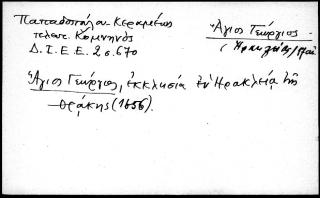 Παπαδοπούλου-Κεραμέως
τελευτ. Κομνηνὸς
Δ. Ι. Ε. Ε. 2 σ. 670
Ἅγιος Γεώργιος
Ἅγιος Γεώργιος, ἐκκλησία ἐν Ἡρακλείᾳ τῆς
Θρᾴκης (1656).